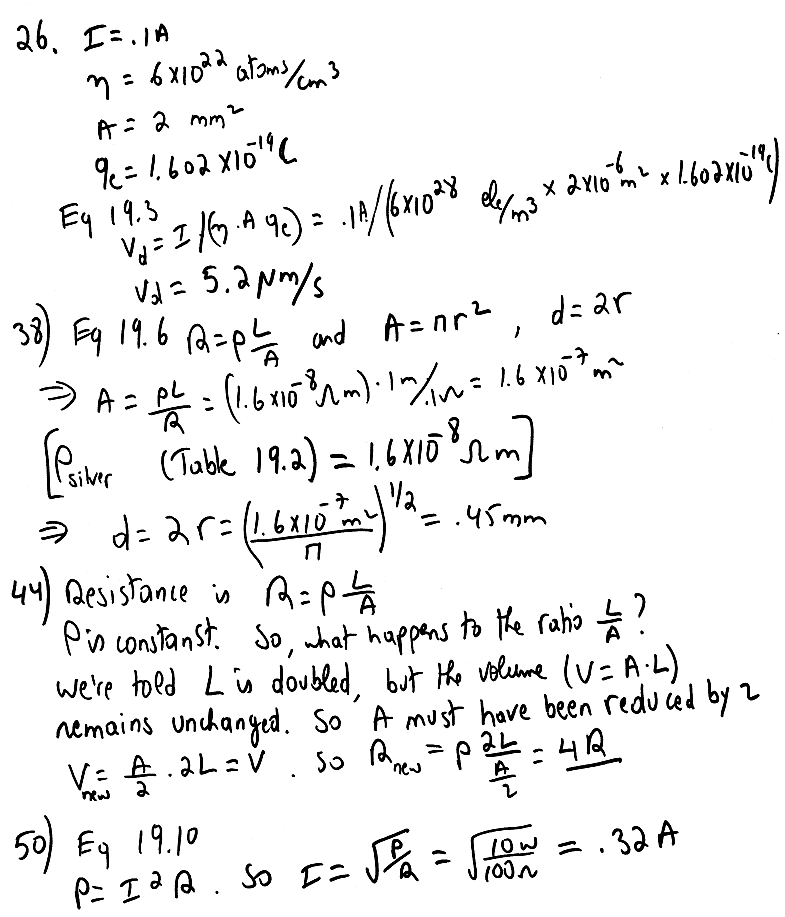 26. I = .1A
η = 6×10²² atoms/cm³
A = 2 mm²
qₑ = 1.602 ×10⁻¹⁹ C
Eq 19.3
V_d = I/(η·A qₑ) = .1A/(6×10²⁸ ele/m³ × 2×10⁻⁶ m² × 1.602×10⁻¹⁹ C)
V_d = 5.2 μm/s
38) Eq 19.6 R=ρ L/A and A=πr², d=2r
⇒ A = ρL/R = (1.6×10⁻⁸ Ωm)·1m/.1Ω = 1.6 ×10⁻⁷ m²
[ρ_silver (Table 19.2) = 1.6×10⁻⁸ Ωm]
⇒ d= 2r= (1.6×10⁻⁷ m²/π)^1/2 = .45mm
44) Resistance is R=ρ L/A
ρ is constanst. So, what happens to the ratio L/A?
We're told L is doubled, but the volume (V=A·L)
remains unchanged. So A must have been reduced by 2
V_new = A/2 · 2L = V. So R_new = ρ 2L/(A/2) = 4R
50) Eq 19.10
P= I²R. So I= √(P/R) = √(10W/100Ω) = .32A